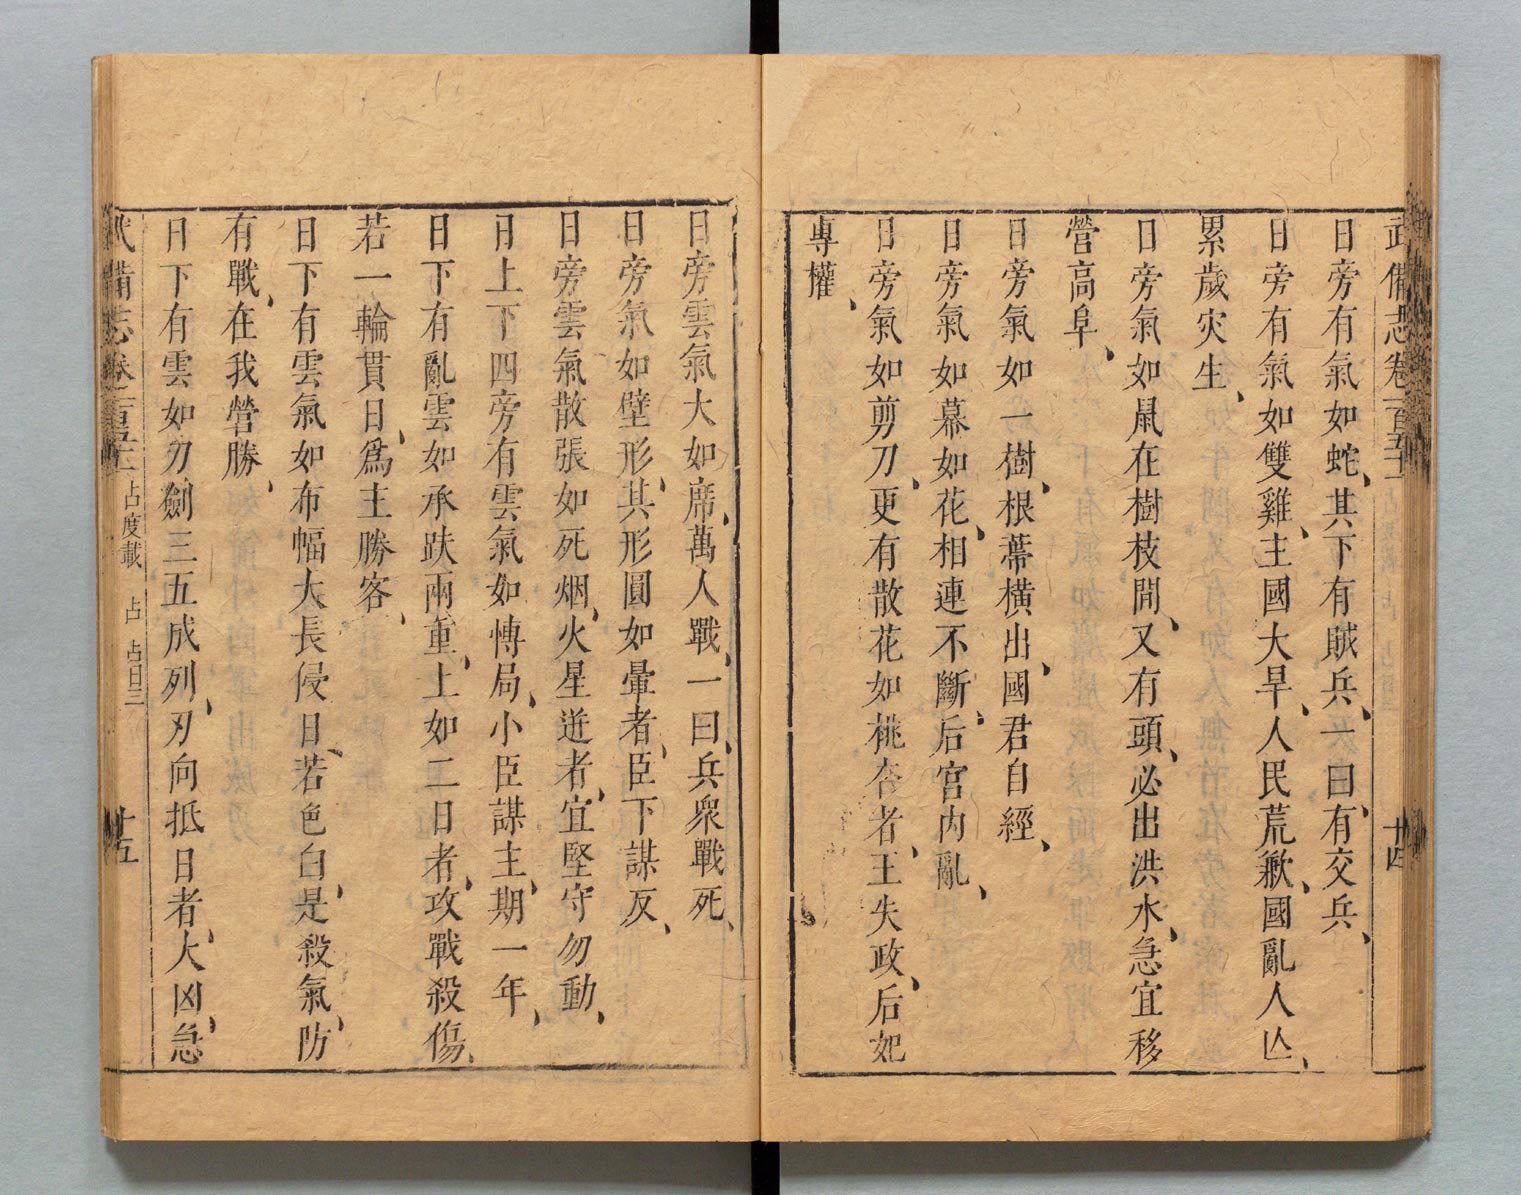 武備志卷一百五十一
十四
日旁有氣如蛇、其下有賊兵、一曰、有交兵、
日旁有氣如雙雞、主國大旱、人民荒歉、國亂人亾、
累歲灾生、
日旁氣如鼠在樹枝間、又有頭、必出洪水、急宜移
營高阜、
日旁氣如一樹、根蕚橫出、國君自經、
日旁氣如幕如花、相連不斷、后宮內亂、
日旁氣如剪刀、更有散花如桃杏者、王失政、后妃
專權、
日旁雲氣大如席、萬人戰、一曰、兵衆戰死、
日旁氣如壁形、其形圓如暈者、臣下謀反、
日旁雲氣散張如死烟、火星迸者、宜堅守勿動、
日上下四旁有雲氣如慱局、小臣謀主、期一年、
日下有亂雲如承趺兩重、上如二日者、攻戰殺傷、
若一輪貫日、爲主勝客、
日下有雲氣如布幅大長侵日、若色白、是殺氣、防
有戰、在我營勝、
日下有雲如刃劍三五成列、刃向抵日者、大凶、急
武備志卷一百五十一 占度載 占 占日三
十五